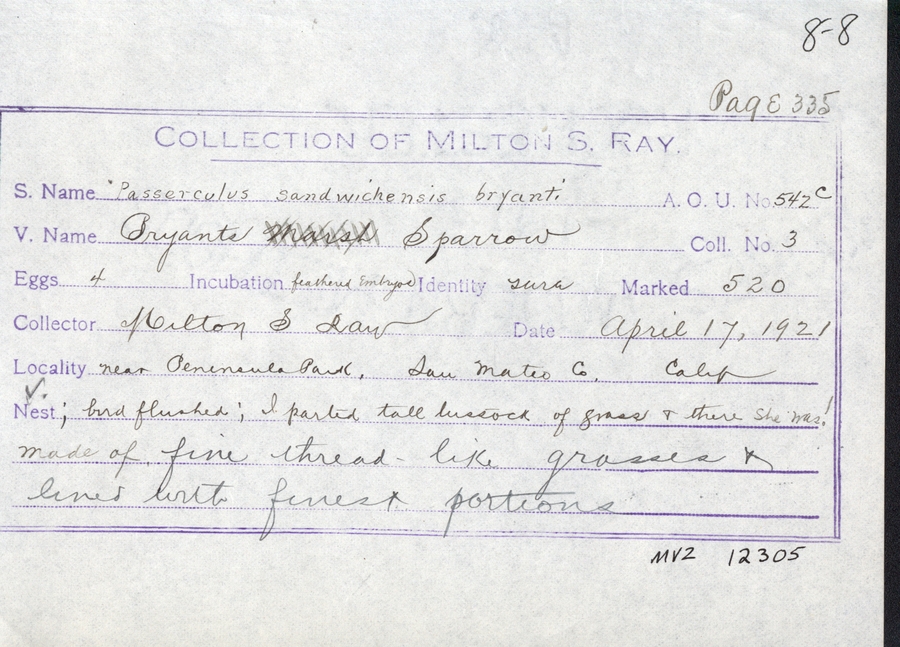 8-8
Page 335
COLLECTION OF MILTON S. RAY.
S. Name Passerculus sandwichensis bryanti A. O. U. No 542c
V. Name Bryants Marsh Sparrow Coll. No. 3
Eggs 4 Incubation feathered Embryos Identity sure Marked 520
Collector Milton S Ray Date April 17, 1921
Locality near Peninsula Park, San Mateo Co. Calif
Nest; bird flushed; I parted tall tussock of grass & there she was!
made of fine thread-like grasses &
lined with finest portions
MVZ 12305